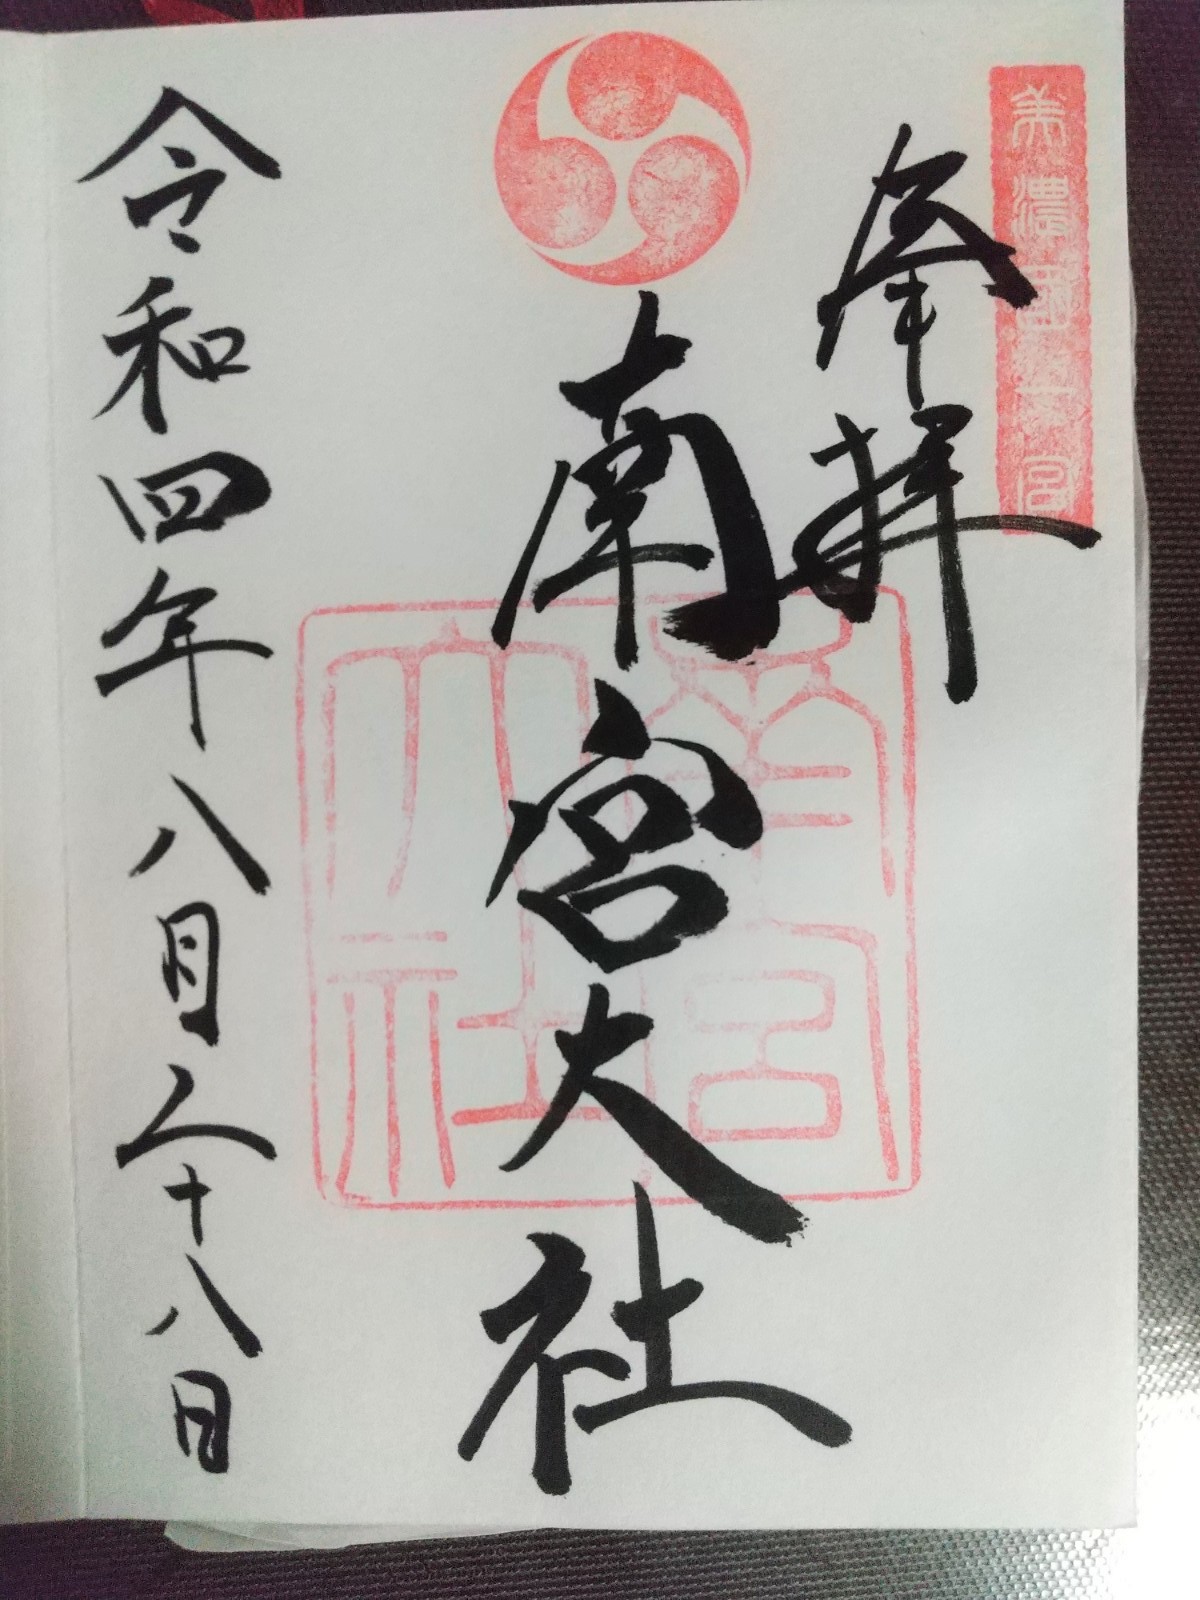 美濃國一宮
奉拝
南宮大社
南宮
大社
令和四年八月二十八日